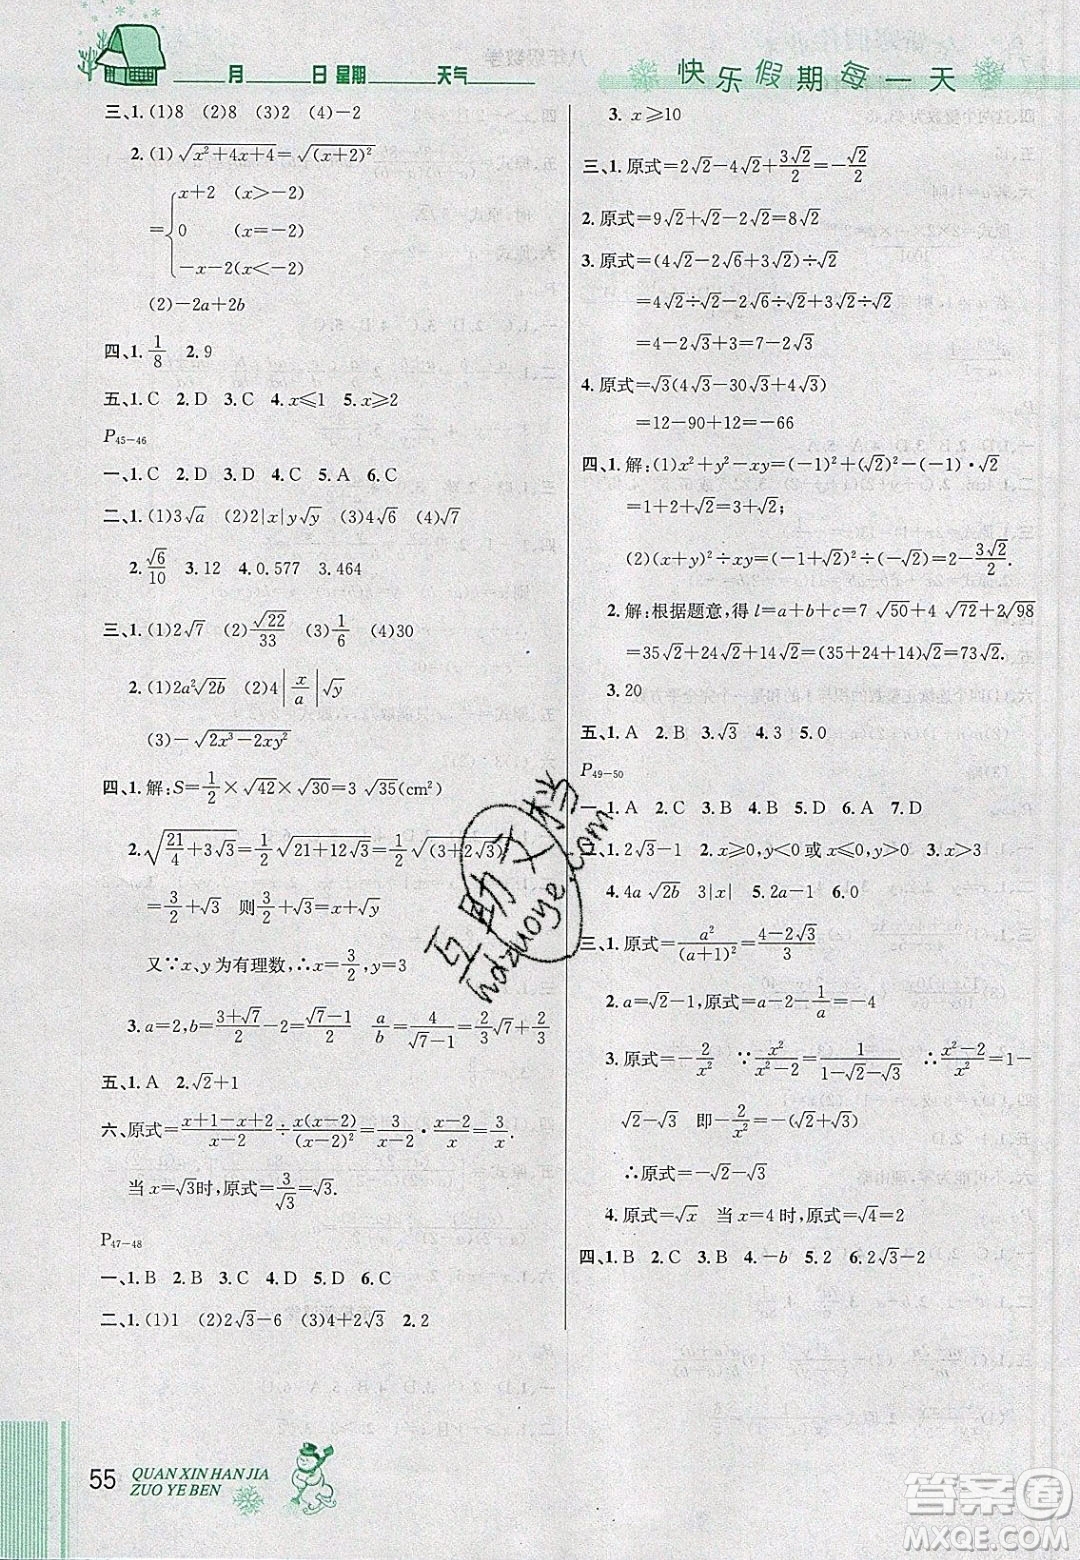 ____月____日 星期____天气____
快乐假期每一天
三、1.(1)8 (2)8 (3)2 (4)-2
2.(1)√(x²+4x+4)=√((x+2)²)
={x+2 (x>-2)
0 (x=-2)
-x-2(x<-2)
(2)-2a+2b
四、1.1/8 2.9
五、1.C 2.D 3.C 4.x≤1 5.x≥2
P45-46
一、1.C 2.D 3.C 4.D 5.A 6.C
二、1.(1)3√a (2)2|x|y√y (3)4√x (4)√y
2.√6/10 3.12 4.0.577 3.464
三、1.(1)2√7 (2)√22/33 (3)1/6 (4)30
2.(1)2a²√(2b) (2)4|x/a|√y
(3)-√(2x³-2xy²)
四、1.解:S=1/2×√42×√30=3 √35(cm²)
2.√(21/4+3√3)=1/2√(21+12√3)=1/2√((3+2√3)²)
=3/2+√3 则3/2+√3=x+y√x
又∵x、y为有理数,∴x=3/2,y=3
3.a=2,b=(3+√7)/2-2=(√7-1)/2 a/b=4/(√7-1)=2/3√7+2/3
五、1.A 2.√2+1
六、原式=(x+1-x+2)/(x-2)÷x(x-2)/(x-2)²=3/(x-2)·(x-2)/x=3/x.
当x=√3时,原式=3/√3=√3.
P47-48
一、1.B 2.B 3.C 4.D 5.D 6.C
二、1.(1)1 (2)2√3-6 (3)4+2√3 2.2
3. x≥10
三、1.原式=2√2-4√2+3√2/2=-√2/2
2.原式=9√2+√2-2√2=8√2
3.原式=(4√2-2√6+3√2)÷√2
=4√2÷√2-2√6÷√2+3√2÷√2
=4-2√3+3=7-2√3
4.原式=√3(4√3-30√3+4√3)
=12-90+12=-66
四、1.解:(1)x²+y²-xy=(-1)²+(√2)²-(-1)·√2
=1+2+√2=3+√2;
(2)(x+y)²÷xy=(-1+√2)²÷(-√2)=2-3√2/2.
2.解:根据题意,得l=a+b+c=7 √50+4 √72+2√98
=35√2+24√2+14√2=(35+24+14)√2=73√2.
3.20
五、1.A 2.B 3.√3 4.3 5.0
P49-50
一、1.A 2.C 3.B 4.B 5.D 6.A 7.D
二、1.2√3-1 2.x≥0,y<0或x≤0,y<0 3.x>3
4.4a √(2b) 3|x| 5.2a-1 6.0
三、1.原式=a²/(a+1)²=(4-2√3)/3
2.a=√2-1,原式=a-2-1/a=-4
3.原式=-2/x² ∵x²/(x²-2)=1/(1-√2-√3) ∴(x²-2)/x²=1-
√2-√3 即-2/x²=-√2-√3
∴原式=-√2-√3
4.原式=√x 当x=4时,原式=√4=2
四、1.B 2.C 3.B 4.-b 5.2 6.2√3-2
互助文档
hdzuoye.com
55 QUAN XIN HAN JIA
ZUO YE BEN
答案圈
MXQE.COM